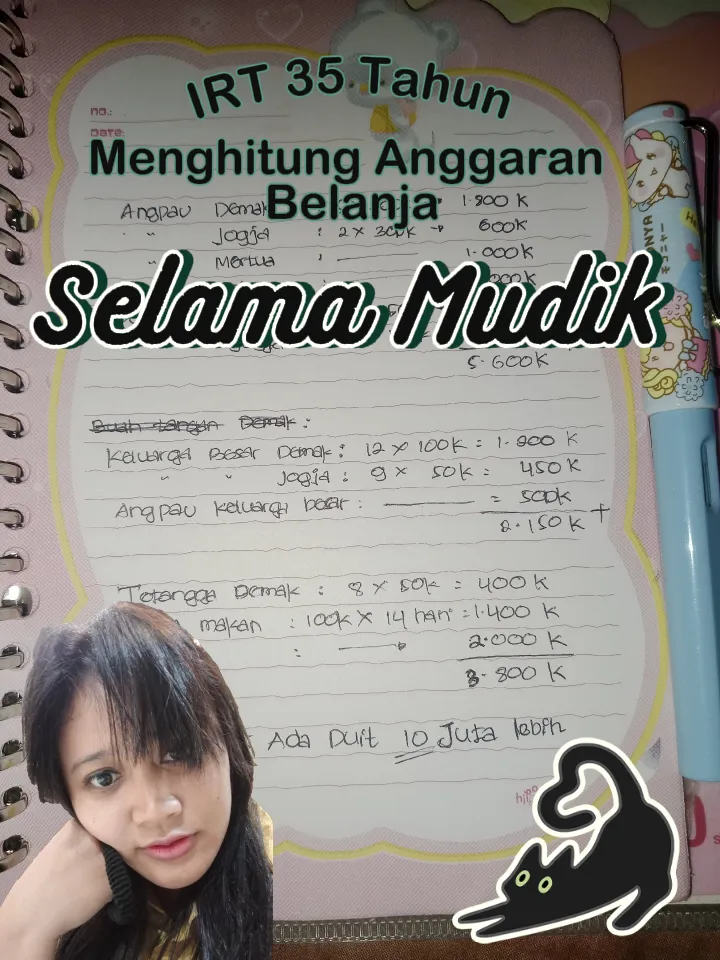 no.:
DATE:
IRT 35 Tahun
Menghitung Anggaran
Belanja
Selama Mudik
Angpau Demak 1.800 K
" " Jogja : 2 x 300K → 600K
" Mertua : 1.000K
5.600K
Buah tangan Demak :
Keluarga Besar Demak : 12 x 100K = 1.200 K
" " Jogja : 9 x 50K = 450K
Angpau keluarga besar : = 500K
2.150K +
Tetangga Demak : 8 x 50K = 400K
makan : 100K x 14 hari = 1.400 K
: → 2.000 K
3.800 K
Ada Duit 10 Juta lebih